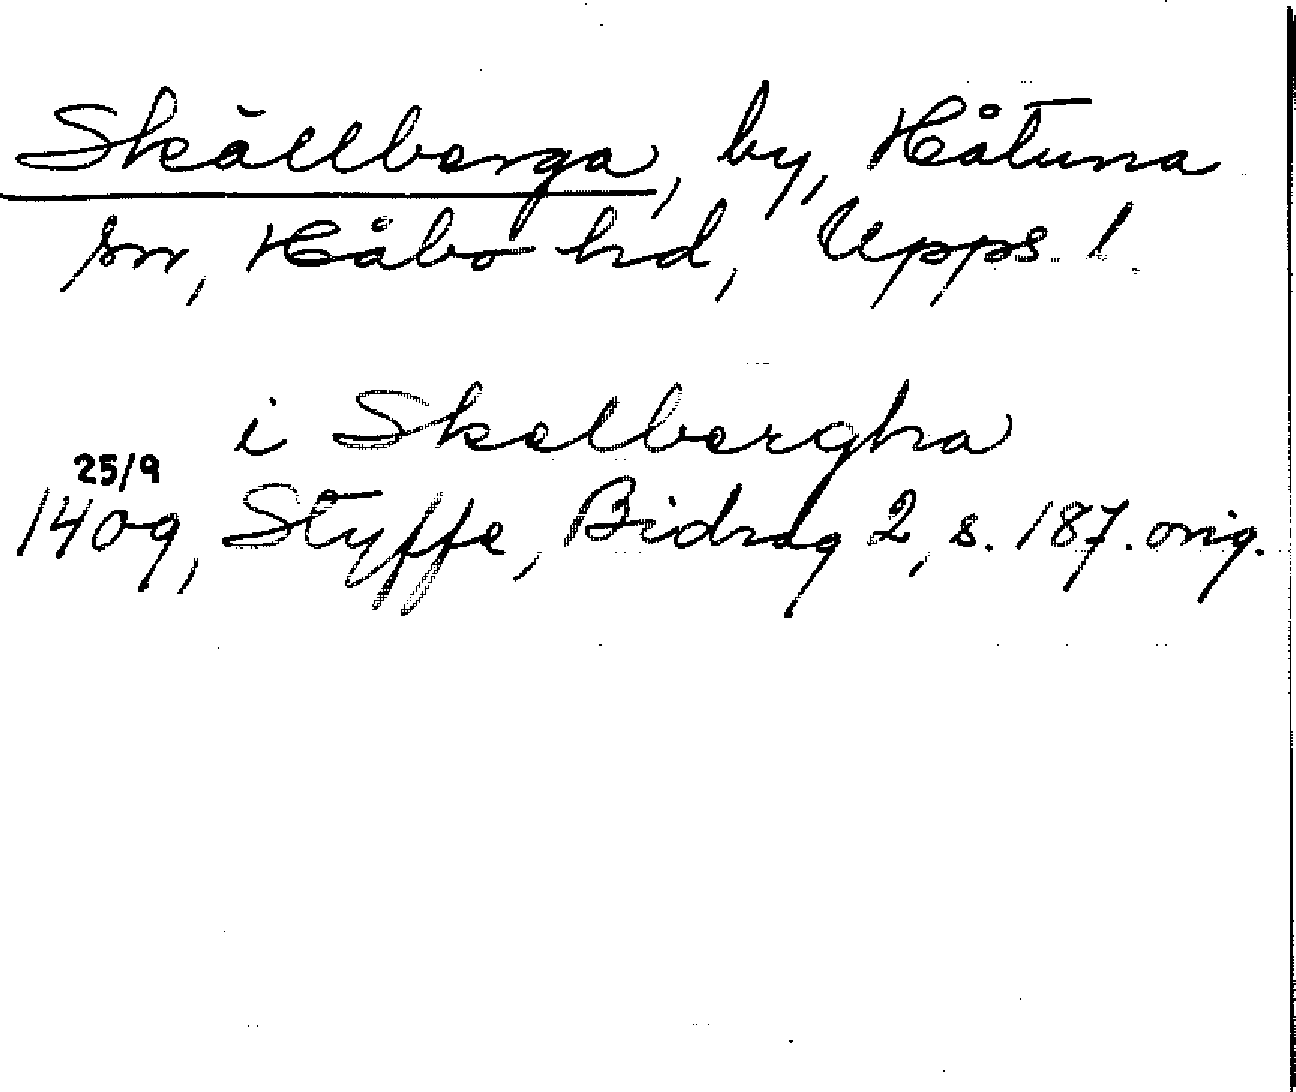 Skällberga, by, Håtuna
sn, Håbo hd, Upps. l.
i Skelbergha
25/9
1409, Styffe, Bidrag 2, s. 187. orig.